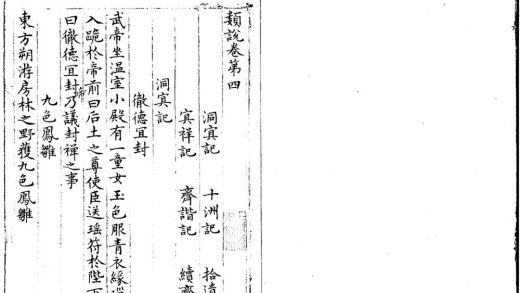 類說卷第四
洞㝠記 十洲記 拾遺
㝠祥記 齊諧記 續齊
洞㝠記
徹德宜封
武帝坐温室小殿有一童女玉色服青衣緣
入跪於帝前曰后土之尊使臣送瑶符於陛下
曰徹德宜封帝乃議封禪之事
九色鳳雛
東方朔游房林之野獲九色鳳雛